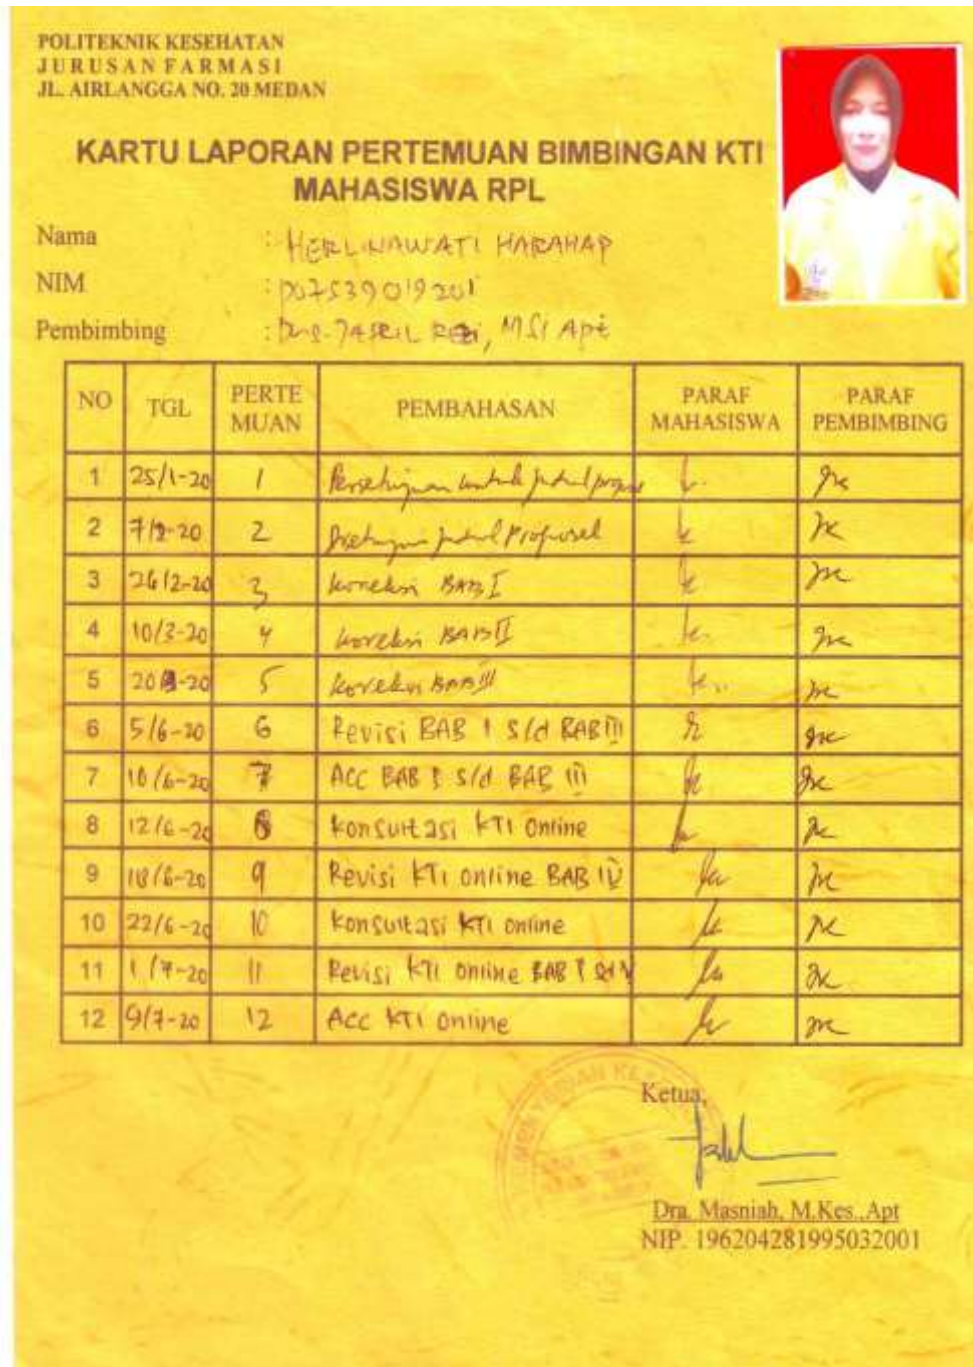 POLITEKNIK KESEHATAN
JURUSAN FARMASI
JL. AIRLANGGA NO. 20 MEDAN
KARTU LAPORAN PERTEMUAN BIMBINGAN KTI
MAHASISWA RPL
Nama : HERLINAWATI HARAHAP
NIM : P07539019201
Pembimbing : MSi Apt
NO TGL PERTE MUAN PEMBAHASAN PARAF MAHASISWA PARAF PEMBIMBING
1 25/1-20 1 Persetujuan untuk judul
2 7/2-20 2 judul Proposal
3 26/2-20 3 koreksi BAB I
4 10/3-20 4 koreksi BAB II
5 5 koreksi BAB III
6 5/6-20 6 Revisi BAB I s/d BAB III
7 10/6-20 7 ACC BAB I s/d BAB III
8 12/6-20 8 konsultasi KTI Online
9 18/6-20 9 Revisi KTI online BAB IV
10 22/6-20 10 konsultasi KTI online
11 1/7-20 11 Revisi KTI online BAB I
12 9/7-20 12 Acc KTI Online
Ketua,
Dra. Masniah, M.Kes.,Apt
NIP. 196204281995032001